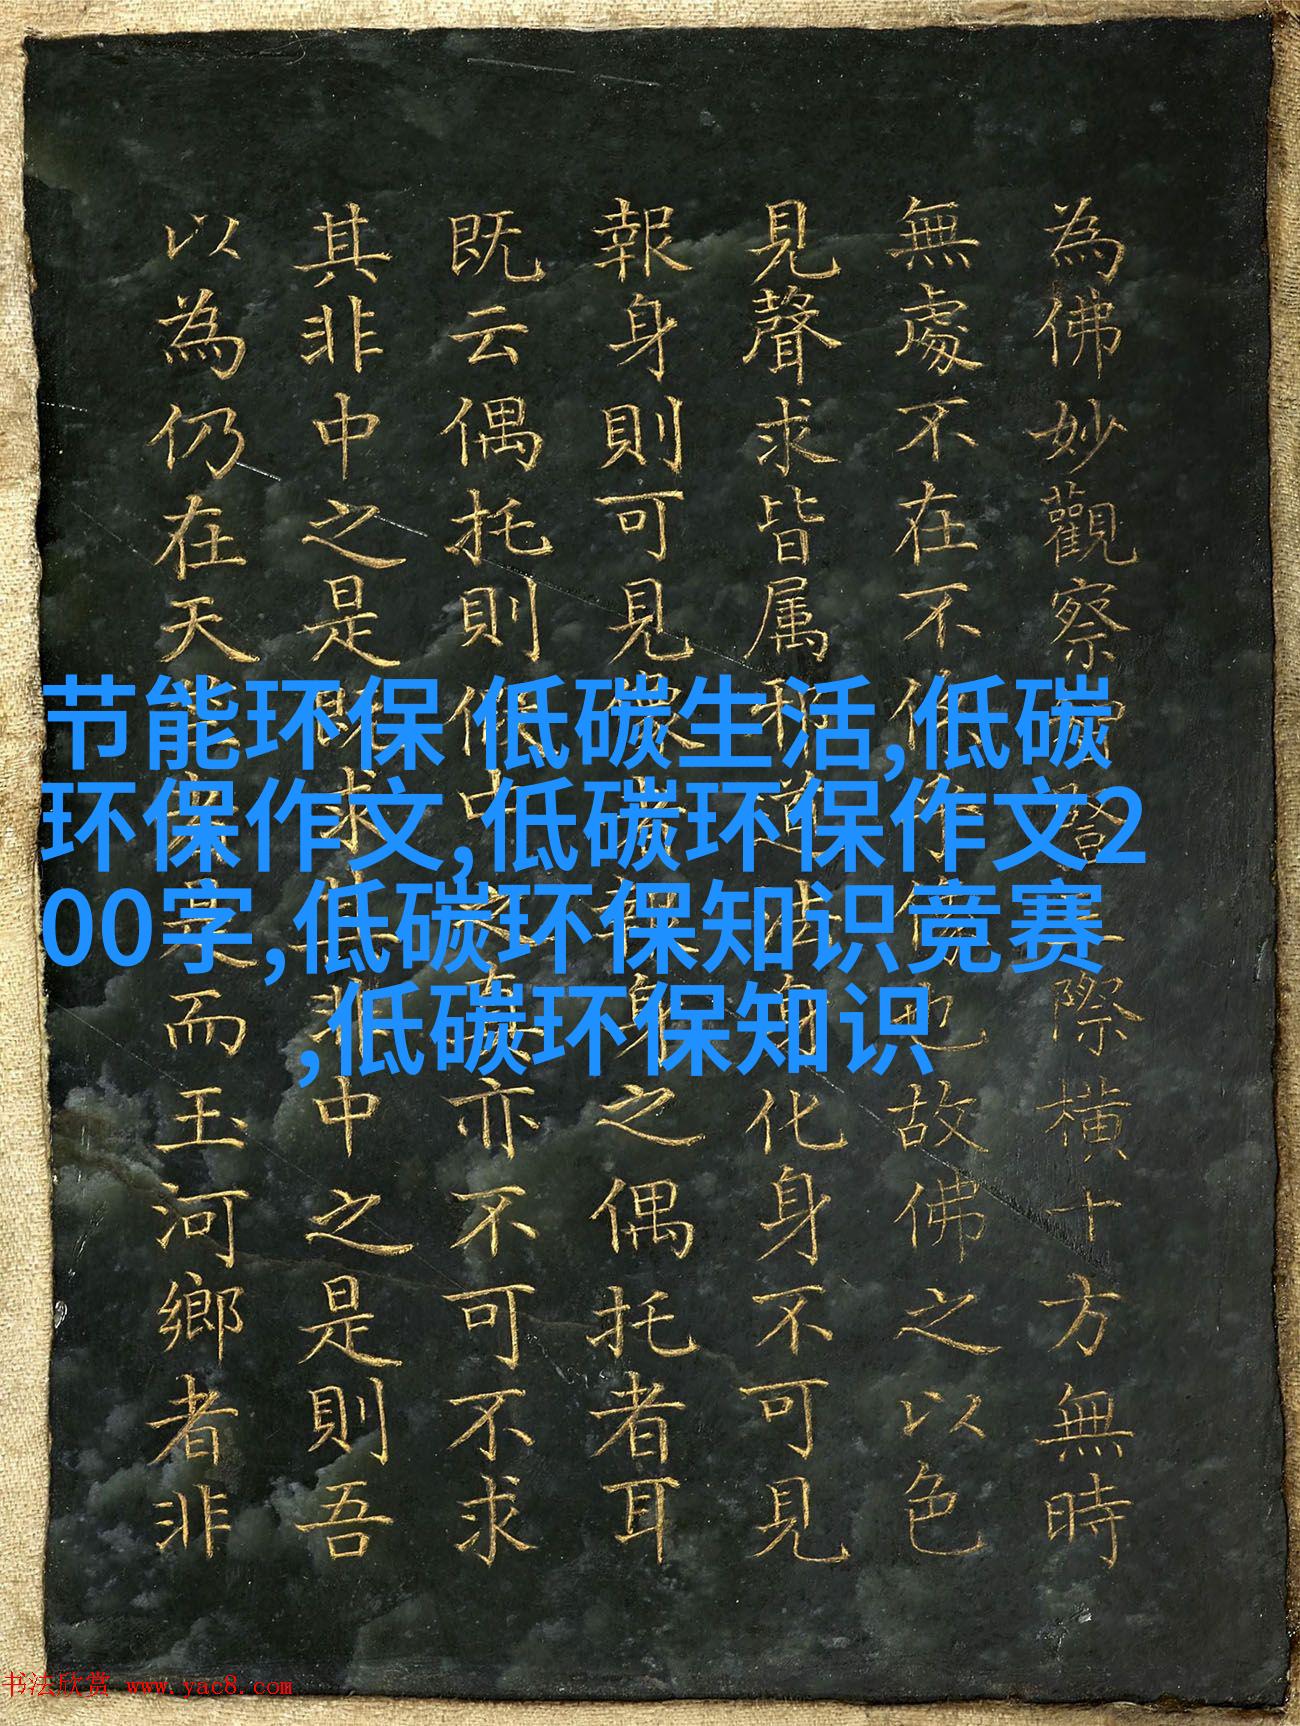 為佛妙觀察際橫十方無時
無處不在不也故佛之以色
見聲求皆属邪道身化身不可見
報身則可見身之偶托者耳
既云偶托則中之真亦不可不求
其非中之是既求其非中之是則吾
以為仍在天而玉河鄉者非
节能环保 低碳生活,低碳
环保作文,低碳环保作文2
00字,低碳环保知识竞赛
,低碳环保知识
书法欣赏 www.yac8.com